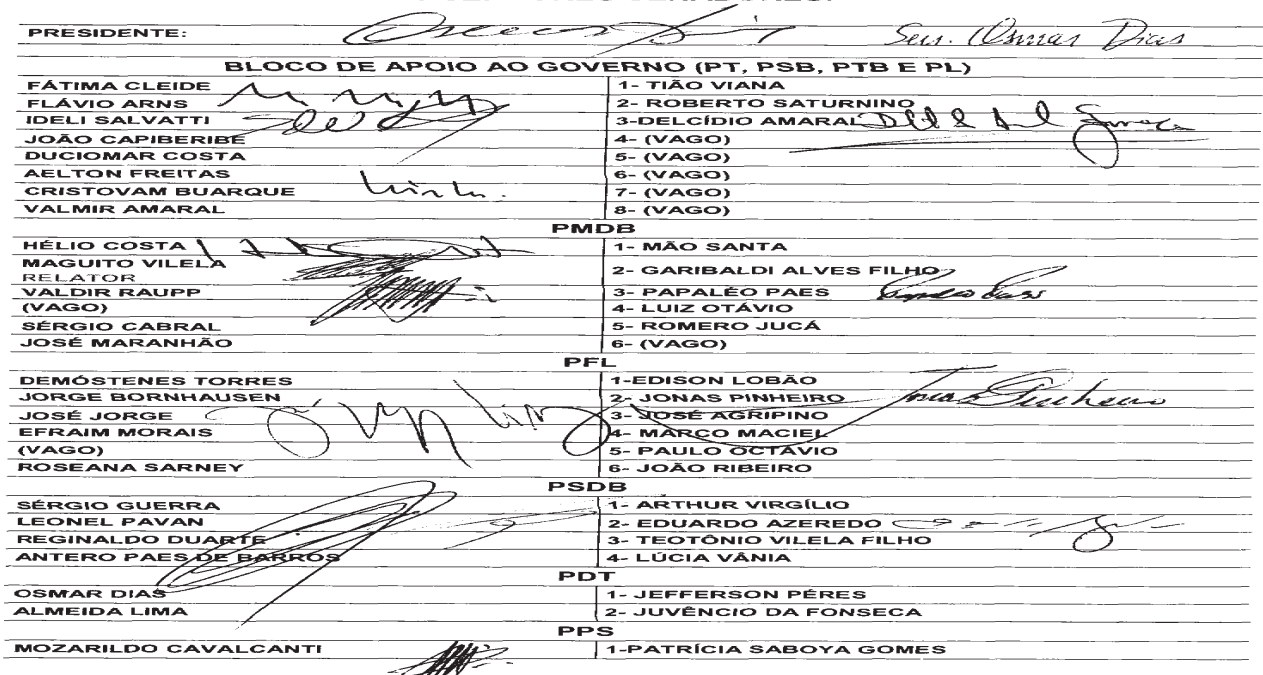 PRESIDENTE: Sen. Osmar Dias
BLOCO DE APOIO AO GOVERNO (PT, PSB, PTB E PL)
FÁTIMA CLEIDE 1- TIÃO VIANA
FLÁVIO ARNS 2- ROBERTO SATURNINO
IDELI SALVATTI 3-DELCÍDIO AMARAL
JOÃO CAPIBERIBE 4- (VAGO)
DUCIOMAR COSTA 5- (VAGO)
AELTON FREITAS 6- (VAGO)
CRISTOVAM BUARQUE 7- (VAGO)
VALMIR AMARAL 8- (VAGO)
PMDB
HÉLIO COSTA 1- MÃO SANTA
MAGUITO VILELA
RELATOR 2- GARIBALDI ALVES FILHO
VALDIR RAUPP 3- PAPALÉO PAES
(VAGO) 4- LUIZ OTÁVIO
SÉRGIO CABRAL 5- ROMERO JUCÁ
JOSÉ MARANHÃO 6- (VAGO)
PFL
DEMÓSTENES TORRES 1-EDISON LOBÃO
JORGE BORNHAUSEN 2- JONAS PINHEIRO Jonas Pinheiro
JOSÉ JORGE 3- JOSÉ AGRIPINO
EFRAIM MORAIS 4- MARCO MACIEL
(VAGO) 5- PAULO OCTÁVIO
ROSEANA SARNEY 6- JOÃO RIBEIRO
PSDB
SÉRGIO GUERRA 1- ARTHUR VIRGÍLIO
LEONEL PAVAN 2- EDUARDO AZEREDO
REGINALDO DUARTE 3- TEOTÔNIO VILELA FILHO
ANTERO PAES DE BARROS 4- LÚCIA VÂNIA
PDT
OSMAR DIAS 1- JEFFERSON PÉRES
ALMEIDA LIMA 2- JUVÊNCIO DA FONSECA
PPS
MOZARILDO CAVALCANTI 1-PATRÍCIA SABOYA GOMES